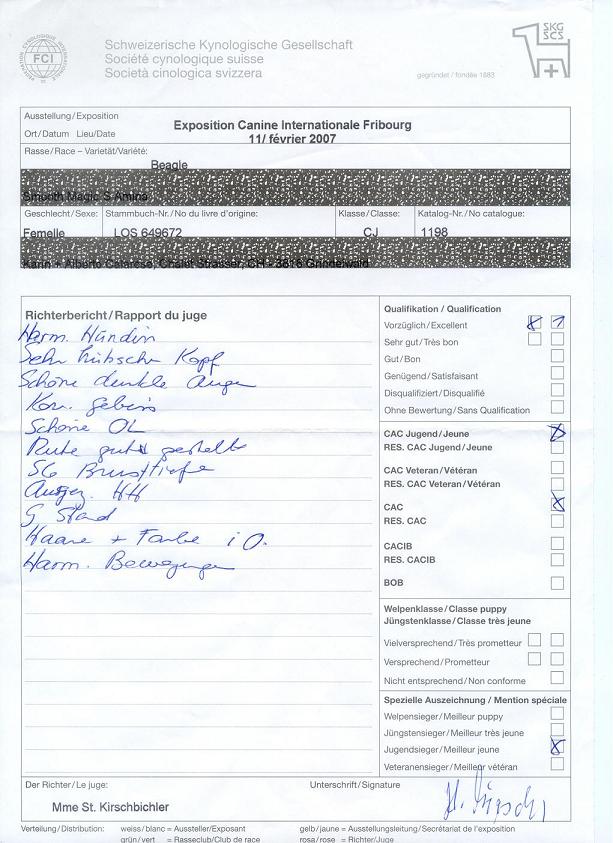 FCI
Schweizerische Kynologische Gesellschaft
Société cynologique suisse
Società cinologica svizzera
SKG
SCS
gegründet / fondée 1883
Ausstellung/Exposition
Exposition Canine Internationale Fribourg
Ort/Datum Lieu/Date
11/ février 2007
Rasse/Race – Varietät/Variété:
Beagle
Smonth Magic S Amina
Geschlecht/Sexe: Stammbuch-Nr./No du livre d'origine: Klasse/Classe: Katalog-Nr./No catalogue:
Femelle LOS 649672 CJ 1198
Karin + Alberto Chalet Strasser, CH - 3818 Grindelwald
Richterbericht/Rapport du juge
Harm. Hündin
Sehr hübscher Kopf
Schöne dunkle Augen
Korr. Gebiss
Schöne OL
Rute gut gestellt
SG Brusttiefe
Ausgez. HH
G Stand
Haare + Farbe i O.
Harm. Bewegungen
Qualifikation / Qualification
Vorzüglich/Excellent X 1
Sehr gut/Très bon
Gut/Bon
Genügend/Satisfaisant
Disqualifiziert/Disqualifié
Ohne Bewertung/Sans Qualification
CAC Jugend/Jeune X
RES. CAC Jugend/Jeune
CAC Veteran/Vétéran
RES. CAC Veteran/Vétéran
CAC X
RES. CAC
CACIB
RES. CACIB
BOB
Welpenklasse/Classe puppy
Jüngstenklasse/Classe très jeune
Vielversprechend/Très prometteur
Versprechend/Prometteur
Nicht entsprechend/Non conforme
Spezielle Auszeichnung / Mention spéciale
Welpensieger/Meilleur puppy
Jüngstensieger/Meilleur très jeune
Jugendsieger/Meilleur jeune X
Veteranensieger/Meilleur vétéran
Der Richter/Le juge: Unterschrift/Signature
Mme St. Kirschbichler
Verteilung/Distribution: weiss/blanc = Aussteller/Exposant gelb/jaune = Ausstellungsleitung/Secrétariat de l'exposition
grün/vert = Rasseclub/Club de race rosa/rose = Richter/Juge